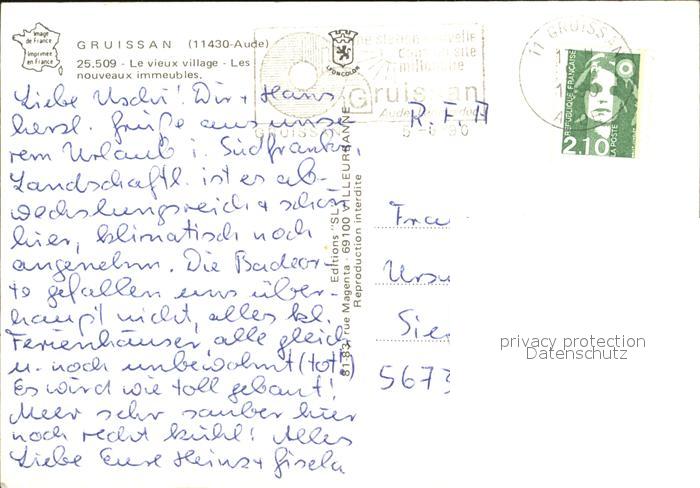 Image
de France
Imprimée
en France
GRUISSAN (11430-Aude)
25.509 - Le vieux village - Les
nouveaux immeubles.
LYONCOLOR
Gruissan
11 GRUISSAN
REPUBLIQUE FRANÇAISE
LA POSTE
2,10
Liebe Uschi! Dir + Hans
herzl. Grüße aus unse-
rem Urlaub i. Südfrankr.
Landschaftl. ist es ab-
wechslungsreich + schön
hier, klimatisch noch
angenehm. Die Badeor-
te gefallen uns über-
haupt nicht, alles kl.
Ferienhäuser, alle gleich
u. noch unbewohnt (tot!)
Es wird wie toll gebaut!
Meer sehr sauber hier
noch recht kühl! Alles
Liebe Eure Heinz + Gisela
Editions "SL" - VILLEURBANNE
81-83, rue Magenta - 69100 VILLEURBANNE
Reproduction interdite
R.F.A
Frau
Ursu
Sie
5673
privacy protection
Datenschutz